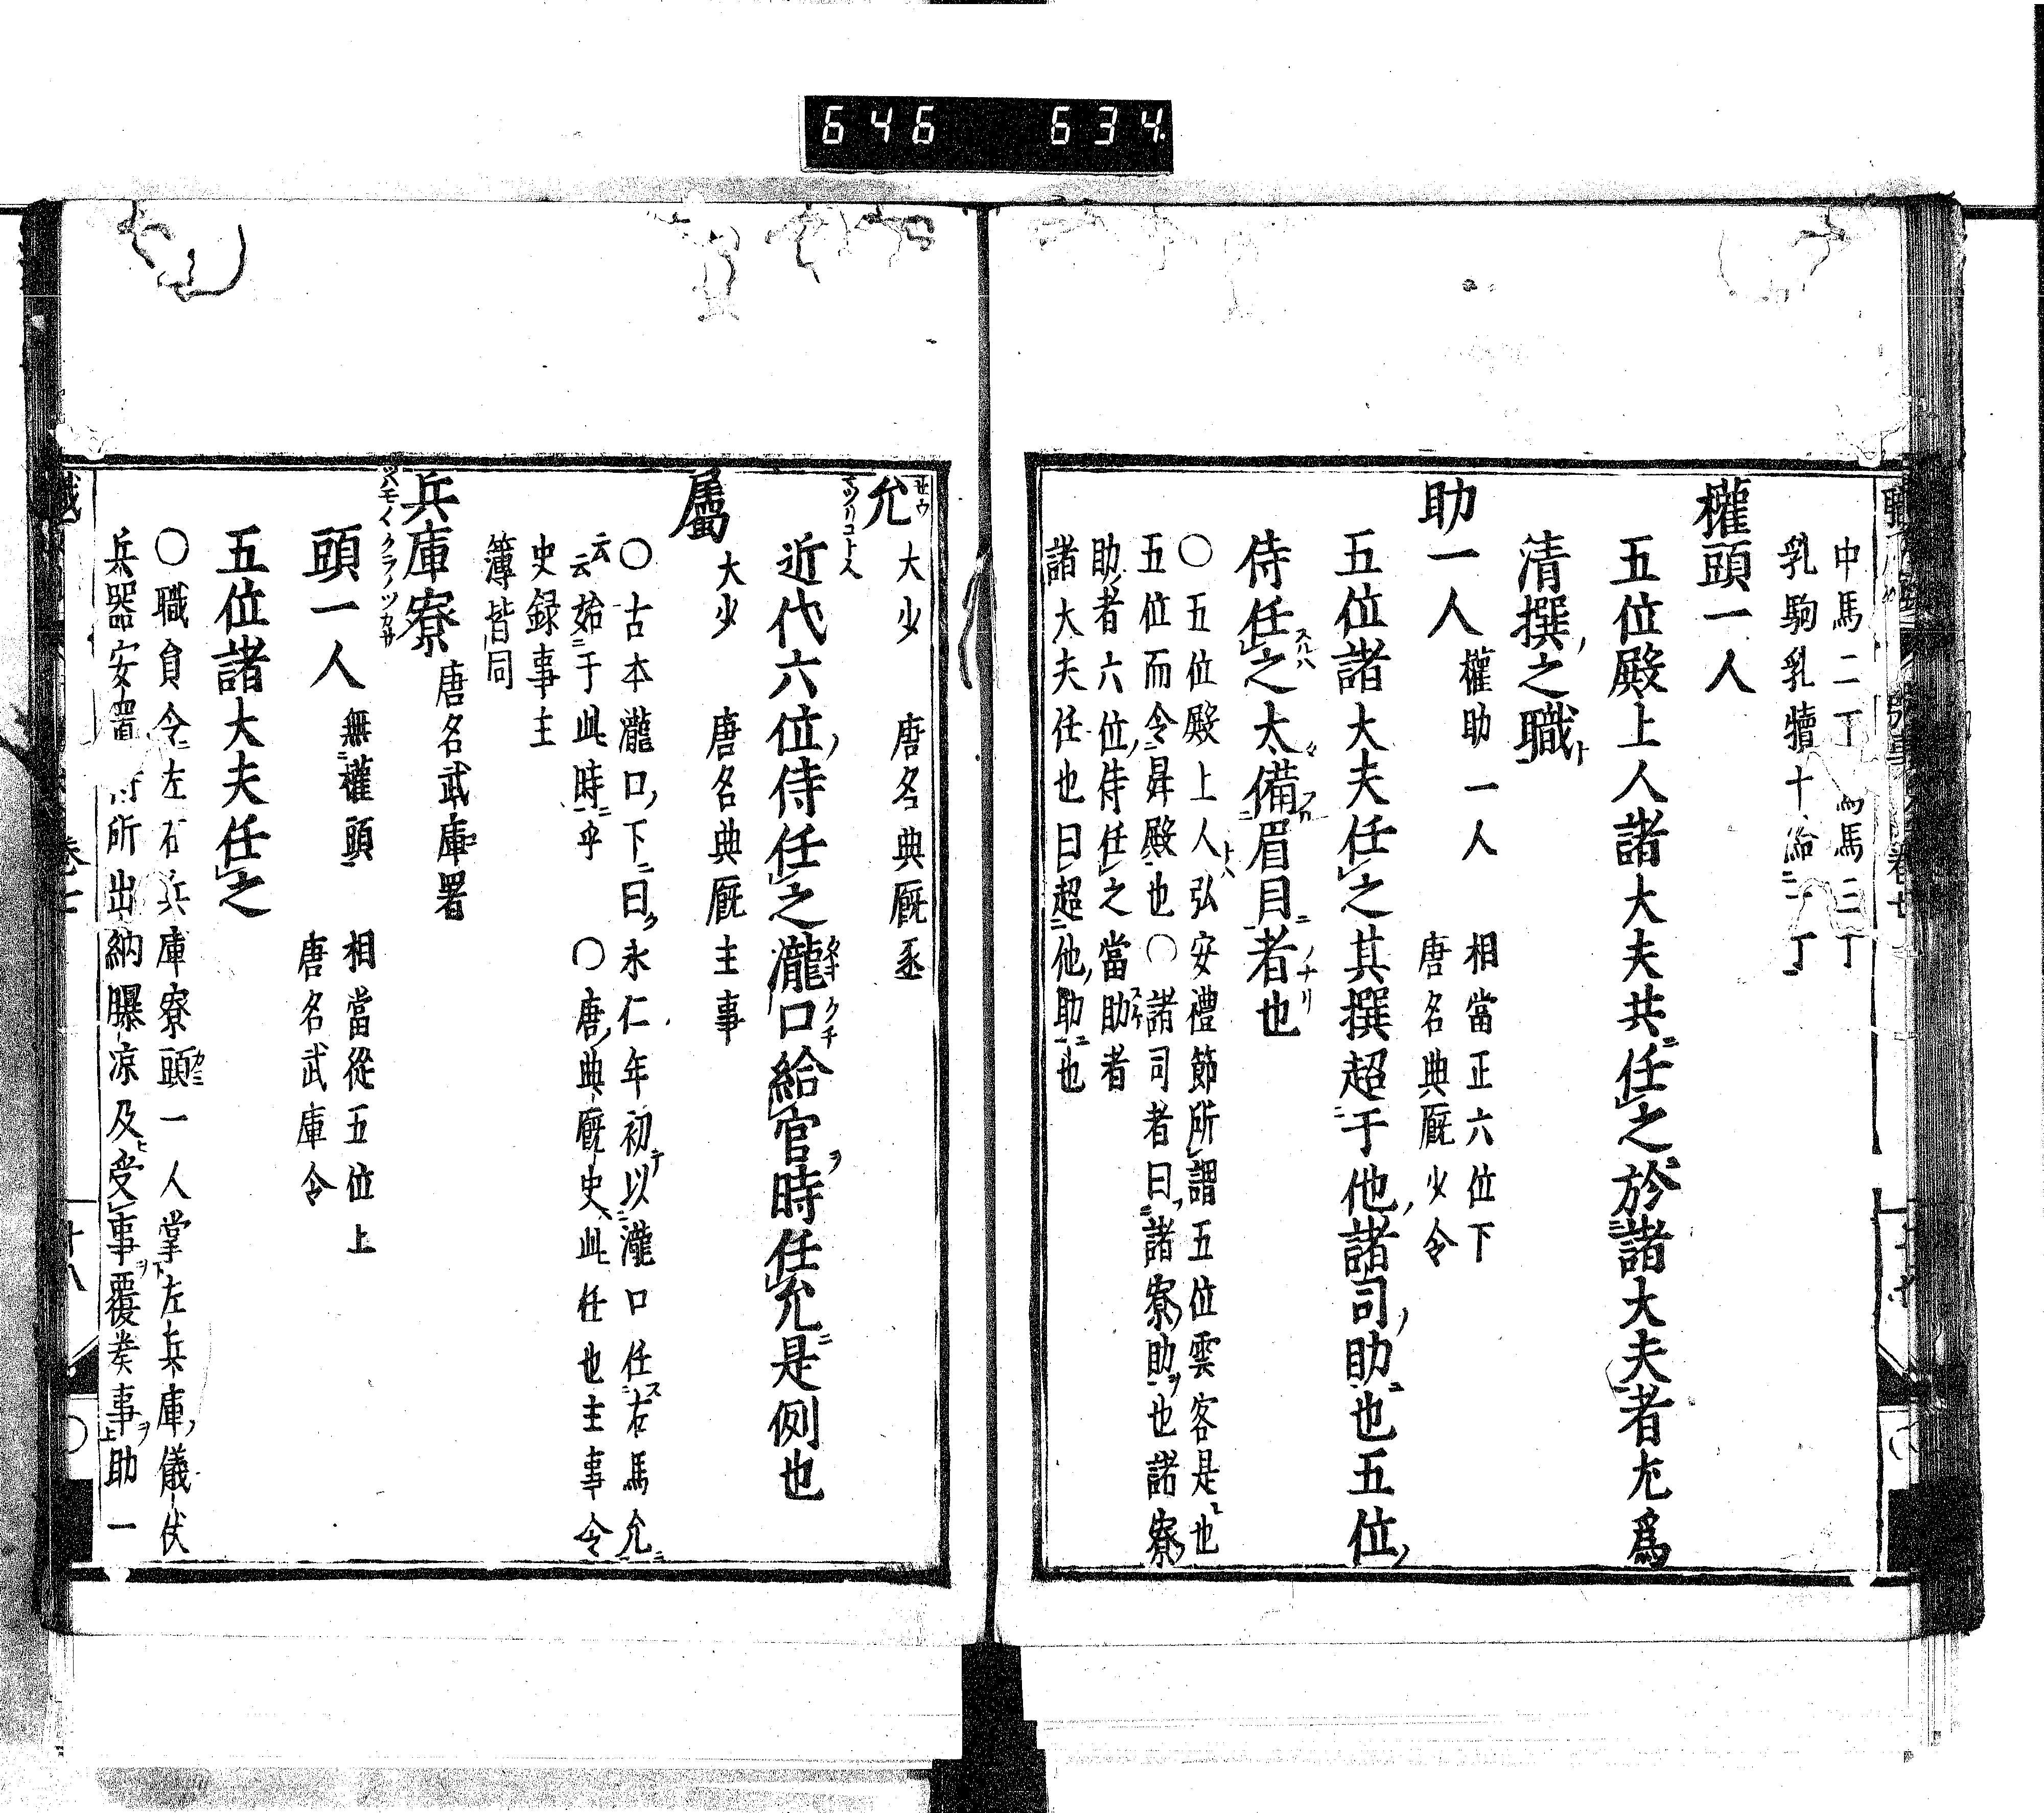 646 634
中馬二丁 馬三丁
乳駒乳犢十給一丁
權頭一人
五位殿上人諸大夫共任之於諸大夫者尤爲
清撰之職
助一人 權助一人 相當正六位下
唐名典廐少令
五位諸大夫任之其撰超于他諸司助也五位
侍任之太備眉目者也
○五位殿上人弘安禮節所謂五位雲客是也
五位而令昇殿也○諸司者曰諸寮助也諸寮
助者六位侍任之當助者
諸大夫任也曰超他助也
允 大少 唐名典廐丞
近代六位侍任之瀧口給官時任允是例也
屬 大少 唐名典廐主事
○古本瀧口下曰永仁年初以瀧口任右馬允
云云始于此時乎 ○唐典廐史此任也主事令
史録事主
簿皆同
兵庫寮 唐名武庫署
頭一人 無權頭 相當從五位上
唐名武庫令
五位諸大夫任之
○職員令左右兵庫寮頭一人掌左兵庫儀仗
兵器安置 所出納曝凉及受事覆奏事助一
十八